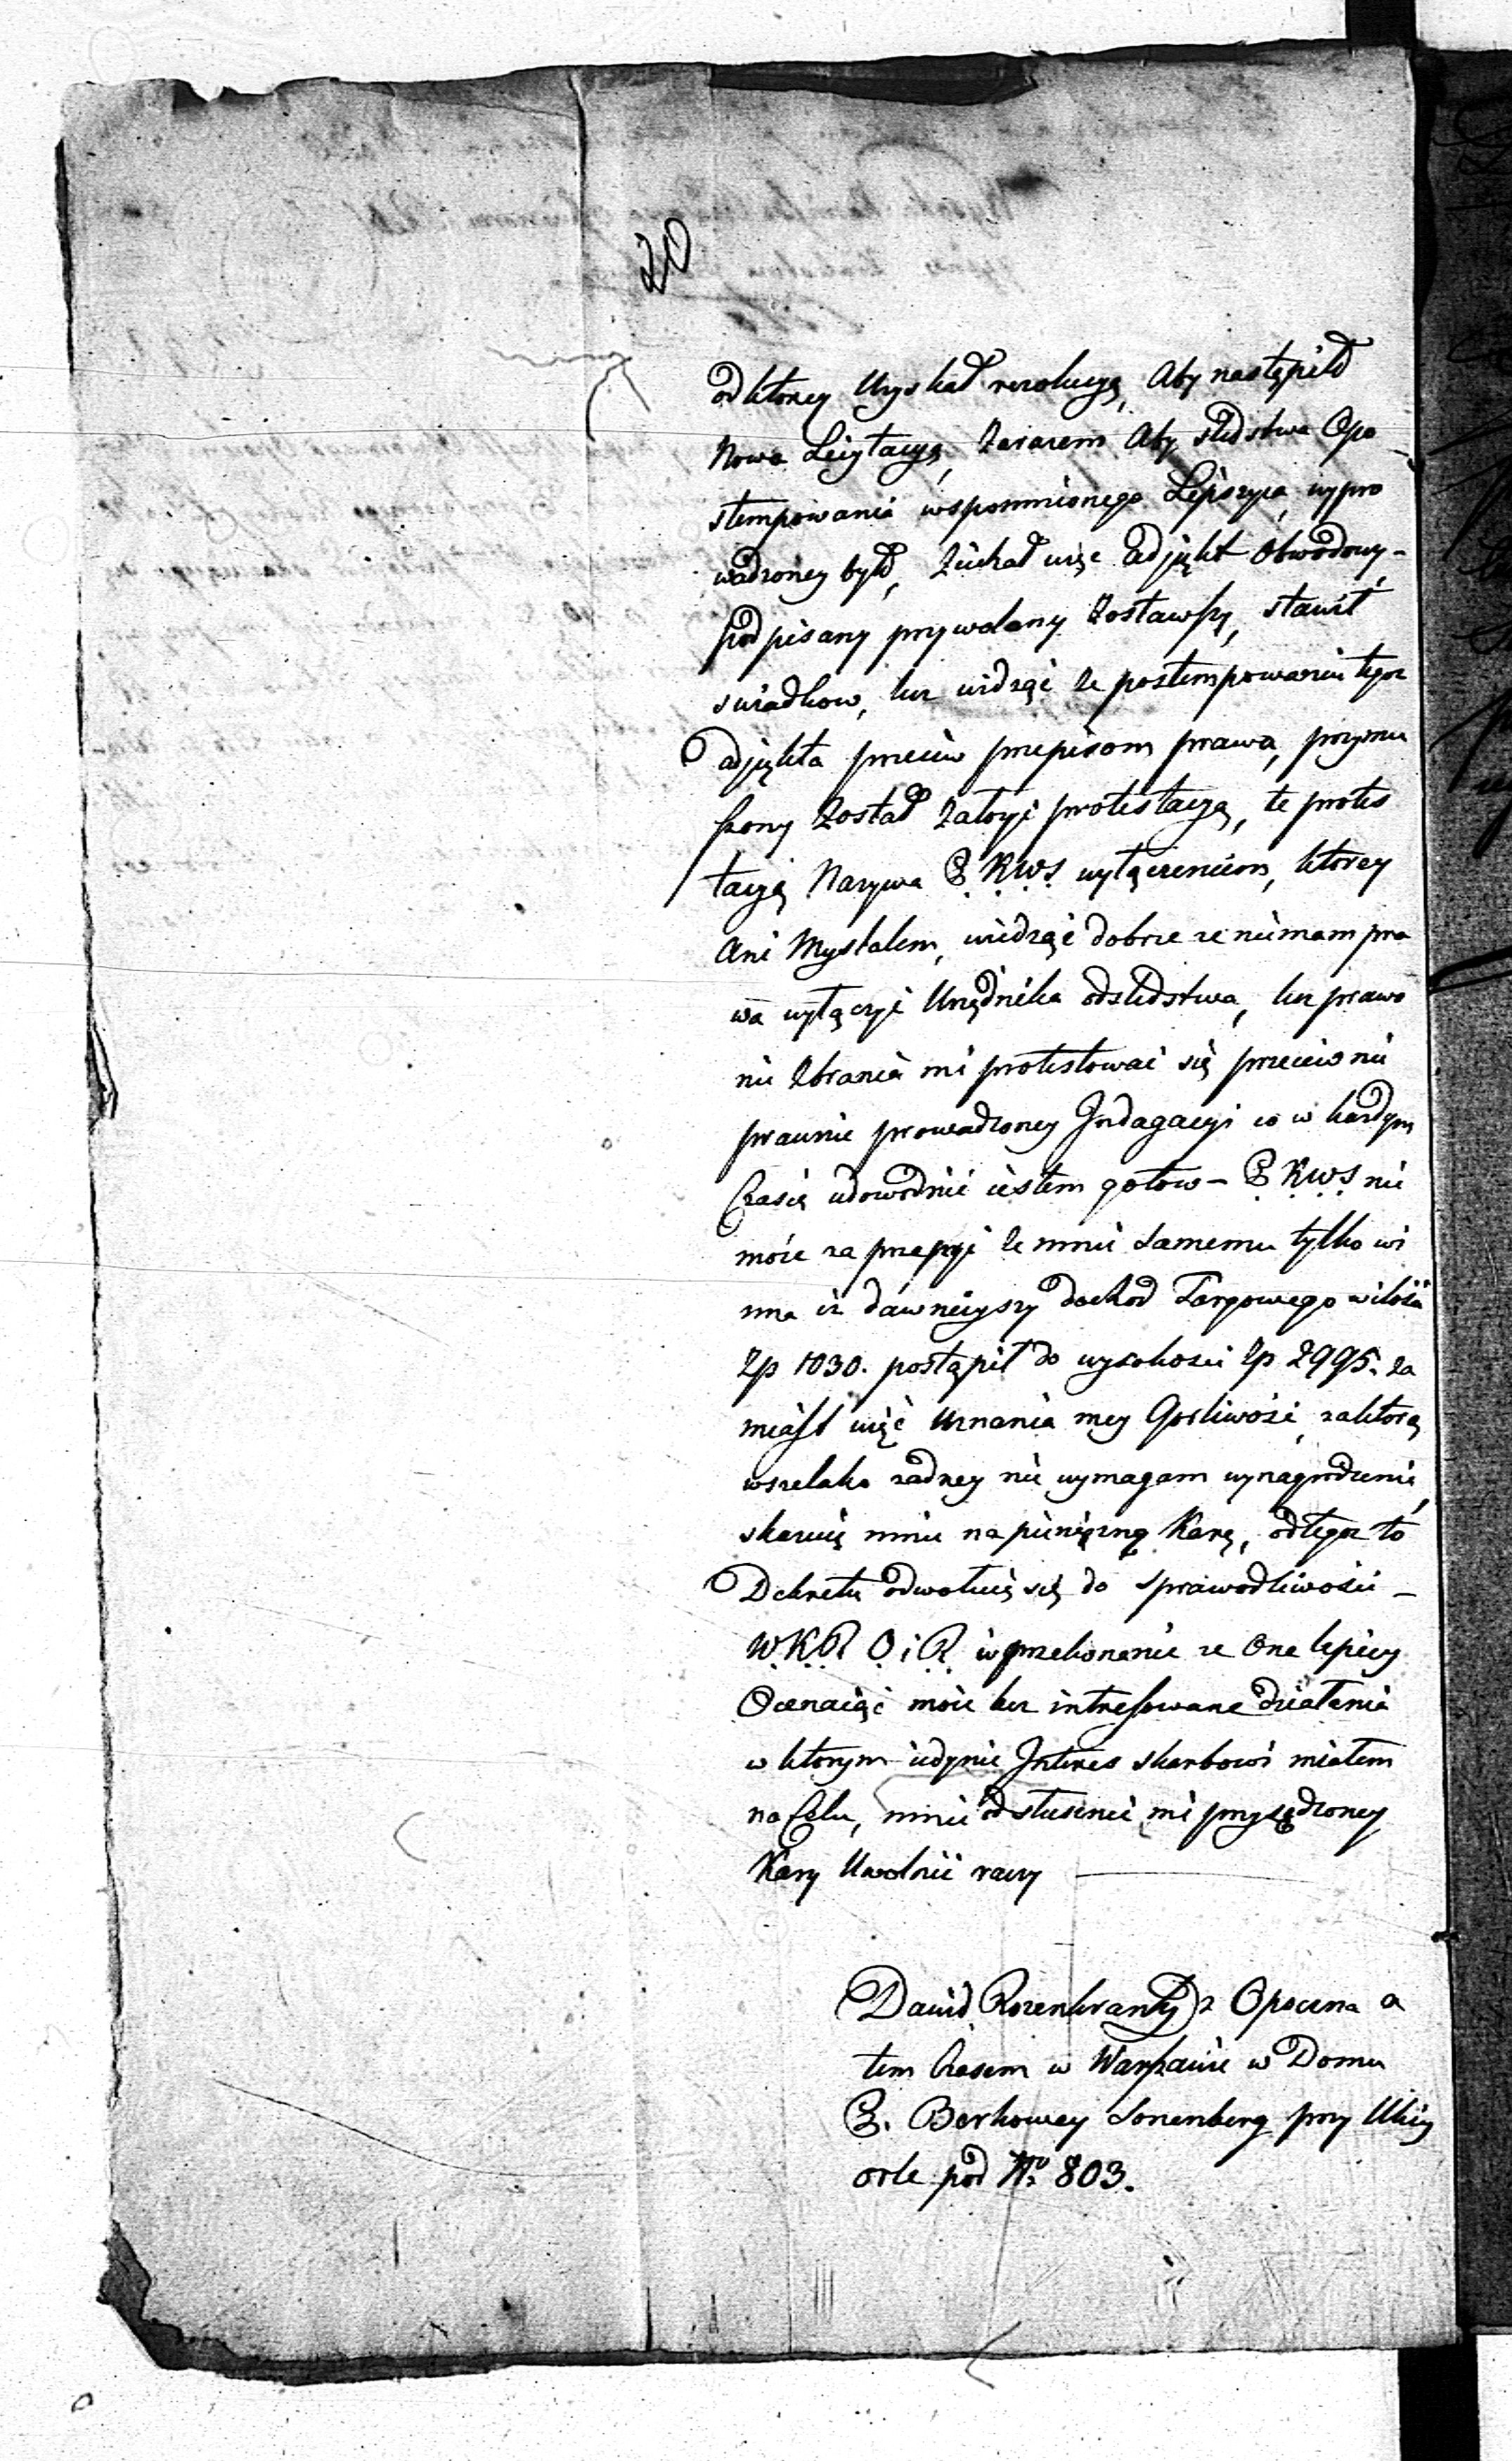 20
od ktorey Uzyskał rezolucyą, Aby nastąpiła
Nowa Licytacya, Zarazem Aby sledstwa Opo
stempowania wspomnionego Lipszyca, wypro
wadzoney była, Ziechał więc adjunkt Obwodowy –
Podpisany przywołany Zostawszy, stawił
swiadkow, lecz widząc ze postempowaniu tegoz
adjunkta przeciw przepisom prawa, przymu
szony Został Załozyć protestacyą, te protes
tacyą Nazywa P. K. W. S. wyłączeniem, ktorey
Ani Myslałem, wiedząc dobrze ze niemam pra
wa wyłączyć Urzędnika od sledstwa, lecz prawo
nie Zbrania mi protestować się przeciw nie
prawnie prowadzoney Indagacyi co w kazdym
Czasie udowodnić iestem gotow – P. K. W. S. nie
może zaprzeczyć ze mnie samemu tylko wi
nna iż dawnieyszy dochod Targowego w ilości
Zp 1030. postąpił do wysokosci Zp 2995. Za
miast więc Uznania mey Gorliwości, za ktorą
wszelako zadney nie wymagam wynagrodzenia,
skazuię mnie na pieniężną Karę, od tegoz to
Dekretu odwołuię się do sprawiedliwości –
W. K. R. P. i S. w przekonaniu ze Ona lepiey
Oceniaiąc moie bez intressowane działania
w ktorym iedynie Interes skarbowi miałem
na Celu, mnie od słusznie mi przysądzoney
Kary Uwolnić raczy
Dawid Rozenkrantz z Opoczna a
tem Czasem w Warszawie w Domu
P. Berkowey Sonenberg przy Ulicy
orle pod No 803.